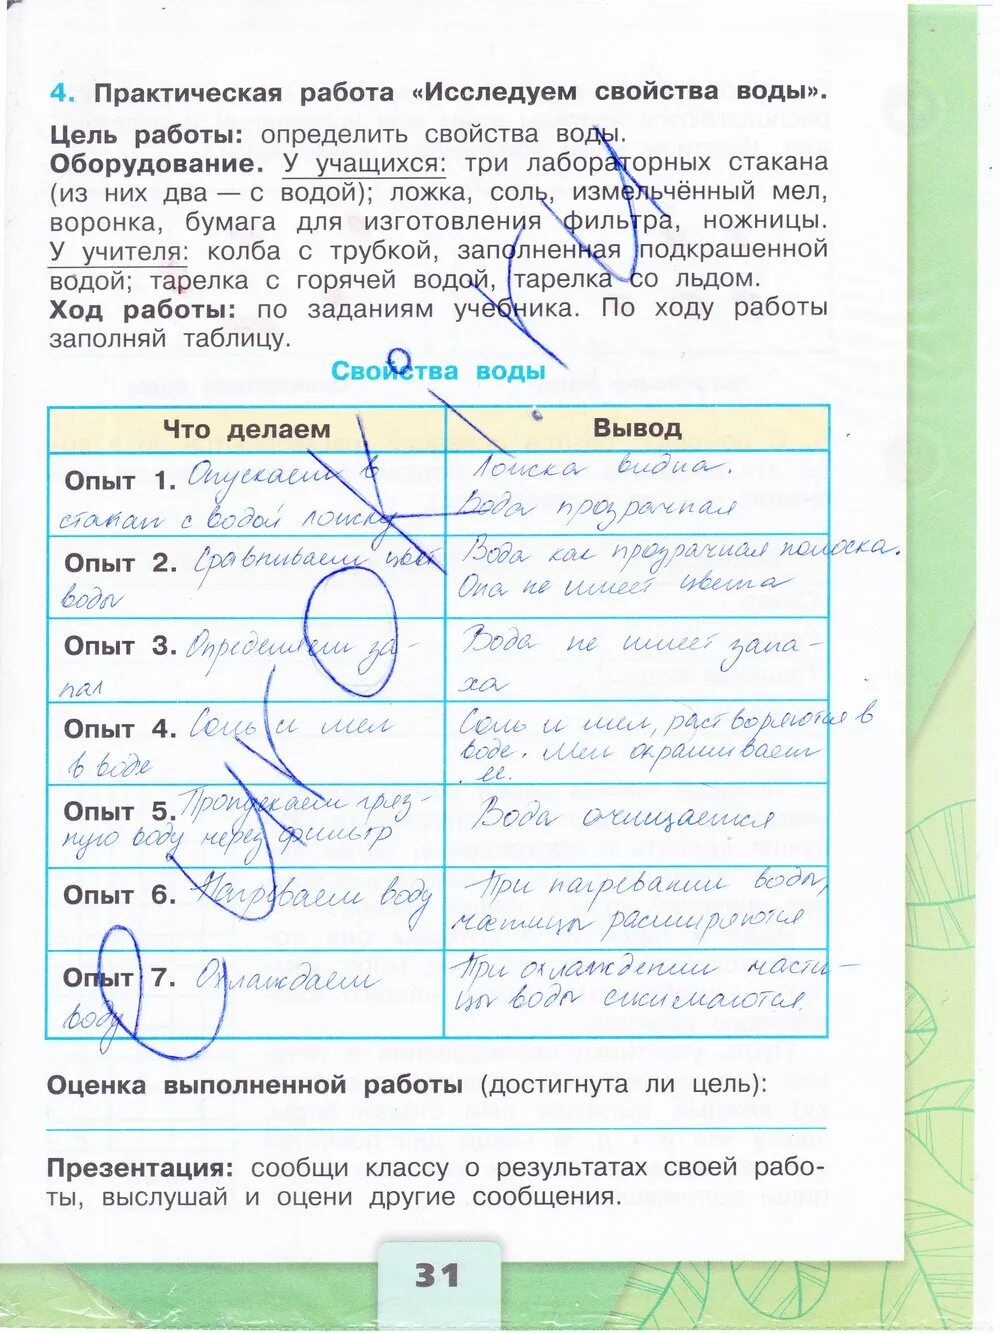 4. Практическая работа «Исследуем свойства воды».
Цель работы: определить свойства воды.
Оборудование. У учащихся: три лабораторных стакана
(из них два — с водой); ложка, соль, измельчённый мел,
воронка, бумага для изготовления фильтра, ножницы.
У учителя: колба с трубкой, заполненная подкрашенной
водой; тарелка с горячей водой, тарелка со льдом.
Ход работы: по заданиям учебника. По ходу работы
заполняй таблицу.
Свойства воды
Что делаем
Вывод
Опыт 1. Опускаем в
стакан с водой ложку
Ложка видна.
Вода прозрачная
Опыт 2. Сравниваем цвет
воды
Вода как прозрачная полоска.
Она не имеет цвета
Опыт 3. Определяем за-
пах
Вода не имеет запа-
ха
Опыт 4. Соль и мел
в воде
Соль и мел, растворяются в
воде. Мел окрашивает
ее.
Опыт 5. Пропускаем гряз-
ную воду через фильтр
Вода очищается
Опыт 6. Нагреваем воду
При нагревании воды,
частицы расширяются
Опыт 7. Охлаждаем
воду
При охлаждении части-
цы воды сжимаются.
Оценка выполненной работы (достигнута ли цель):
Презентация: сообщи классу о результатах своей рабо-
ты, выслушай и оцени другие сообщения.
31